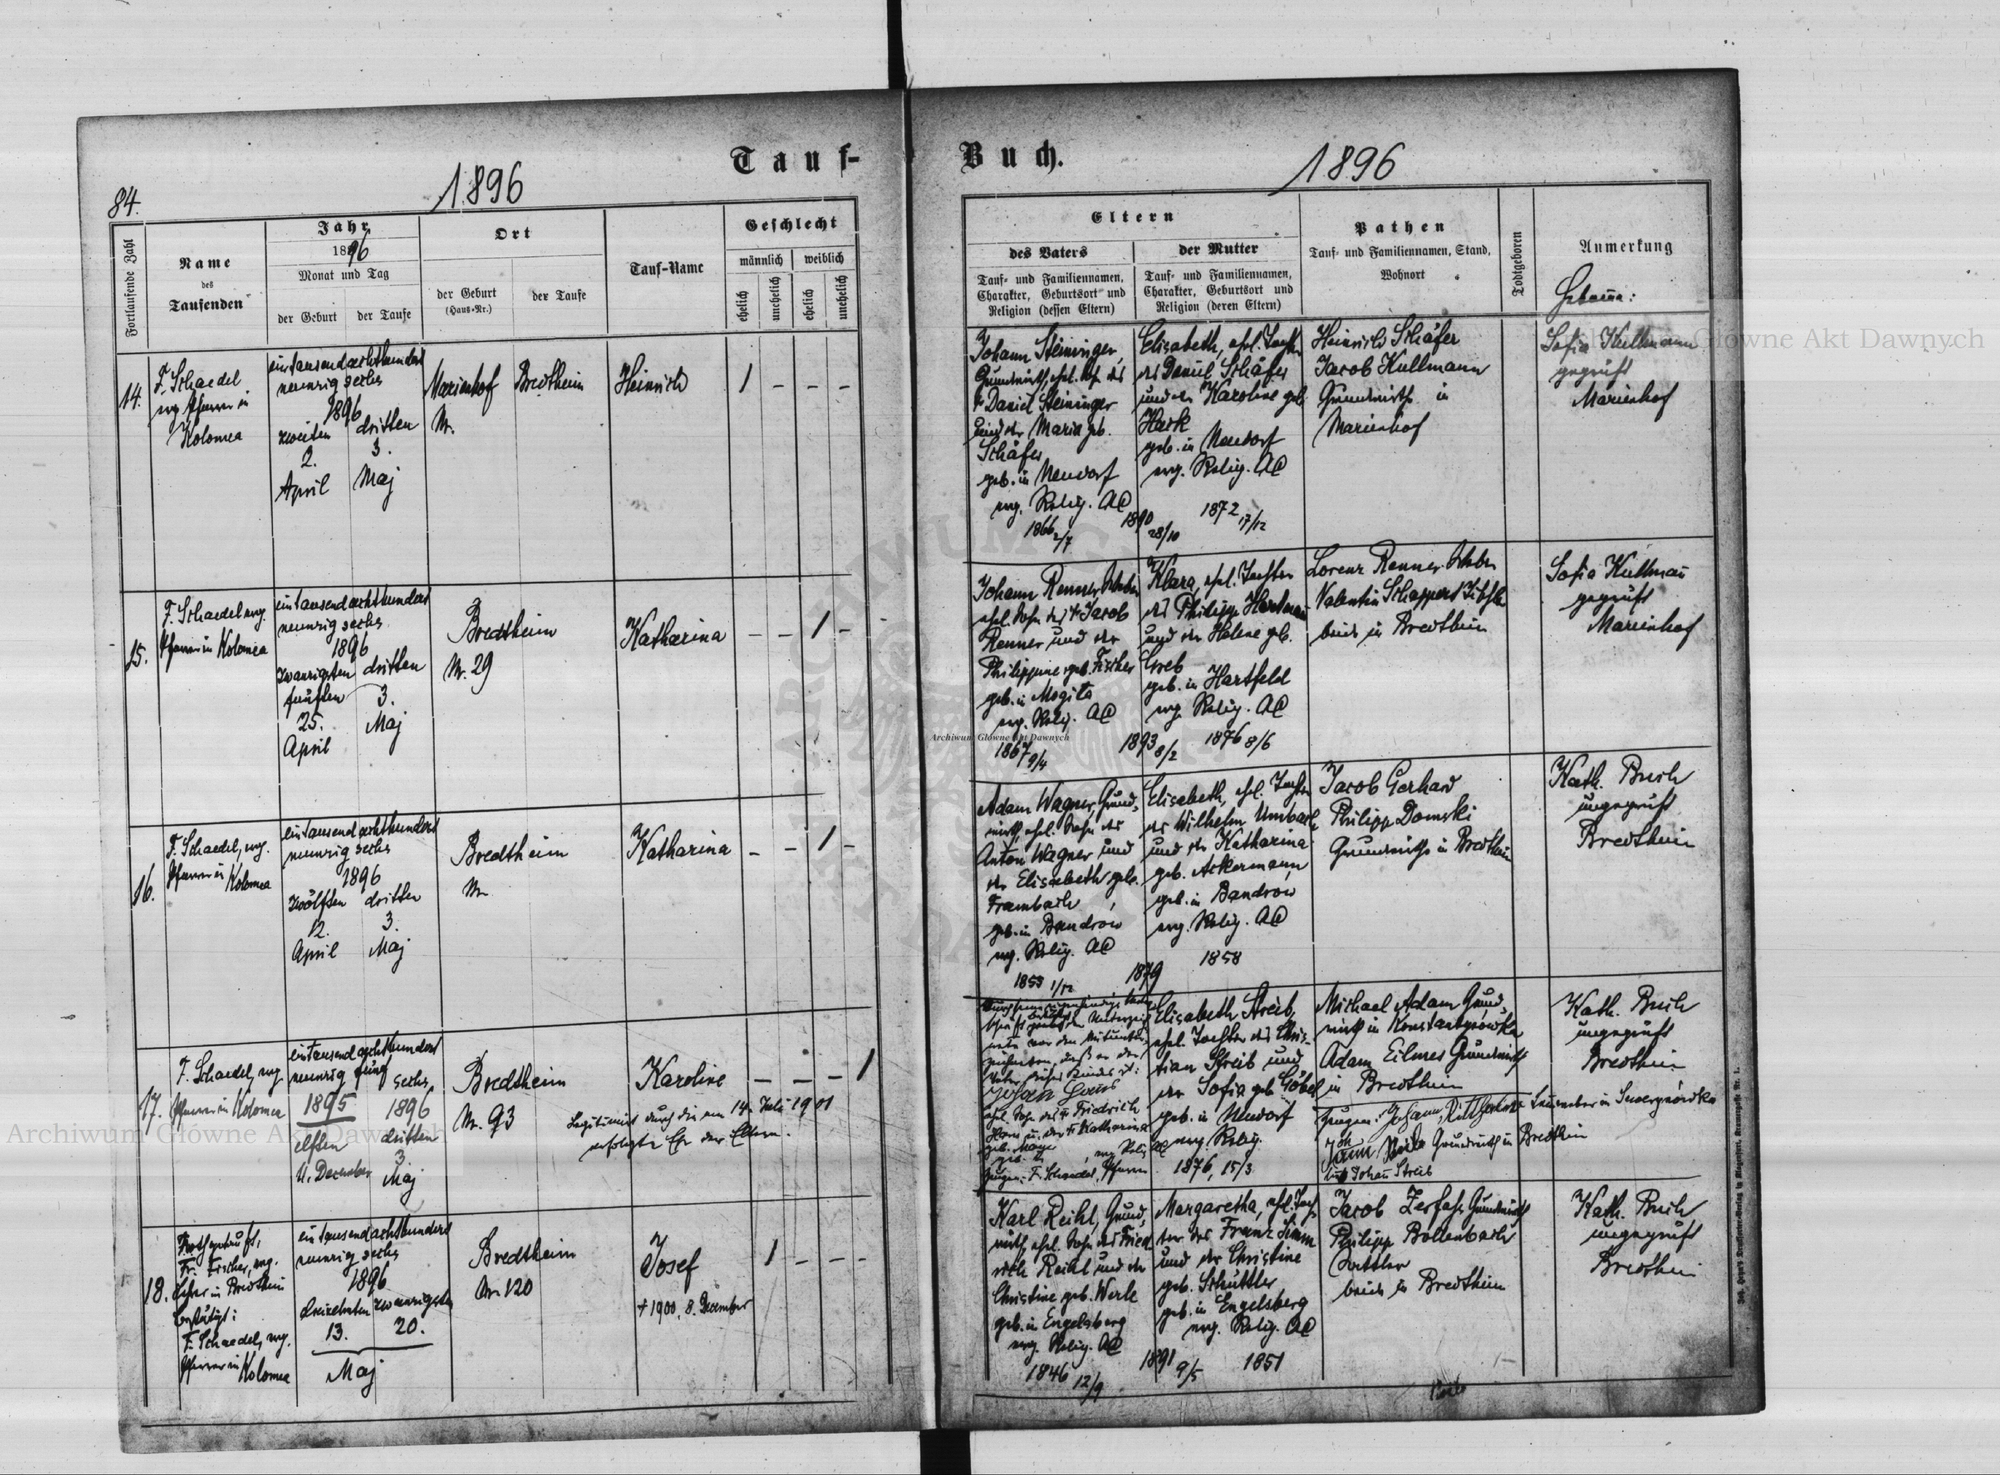 Tauf-
Buch.
84.
1896
1896
Fortlaufende Zahl
Name
des
Taufenden
Jahr
1896
Monat und Tag
der Geburt
der Taufe
Ort
der Geburt
(Haus-Nr.)
der Taufe
Tauf-Name
Geschlecht
männlich
weiblich
ehelich
unehelich
ehelich
unehelich
Eltern
des Vaters
Tauf- und Familiennamen,
Charakter, Geburtsort und
Religion (dessen Eltern)
der Mutter
Tauf- und Familiennamen,
Charakter, Geburtsort und
Religion (deren Eltern)
Pathen
Tauf- und Familiennamen, Stand,
Wohnort
Todtgeboren
Anmerkung
14.
F. Schaedel
evg. Pfarrer in
Kolomea
eintausendachthundert
neunzig sechs
1896
zweiten dritten
2. 3.
April Maj
Marienhof
Nr.
Bredtheim
Heinrich
1 - - -
Johann Steininger,
Grundwirth, ehel. Sohn des
† Daniel Steininger
und der Maria geb.
Schäfer
geb. in Neudorf
evg. Relig. AC
1866 2/7
1890 28/10
Elisabeth, ehel. Tochter
des Daniel Schäfer
und der Karoline geb.
Hark
geb. in Neudorf
evg. Relig. AC
1872 17/12
Heinrich Schäfer
Jacob Kullmann
Grundwirthe in
Marienhof
Sofia Kullmann
geprüft
Marienhof
15.
F. Schaedel evg.
Pfarrer in Kolomea
eintausendachthundert
neunzig sechs
1896
zwanzigsten dritten
fünften 3.
25. Maj
April
Bredtheim
Nr. 29
Katharina
- - 1 -
Johann Renner, Weber
ehel. Sohn des † Jacob
Renner und der
Philippine geb. Fischer
geb. in Mogiła
evg. Relig. AC
1867 9/4
1893 8/2
Klara, ehel. Tochter
des Philipp Hartman
und der Helene geb.
Greb
geb. in Hartfeld
evg. Relig. AC
1876 8/6
Lorenz Renner Weber
Valentin Schappert Tischler
beide in Bredtheim
Sofia Kullmañ
geprüft
Marienhof
16.
F. Schaedel, evg.
Pfarrer in Kolomea
eintausendachthundert
neunzig sechs
1896
zwölften dritten
12. 3.
April Maj
Bredtheim
Nr.
Katharina
- - 1 -
Adam Wagner, Grund-
wirth, ehel. Sohn des
Anton Wagner und
der Elisabeth geb.
Frambach
geb. in Bandrów
evg. Relig. AC
1853 1/12
1879
Elisabeth, ehel. Tochter
des Wilhelm Umbach
und der Katharina
geb. Ackermann
geb. in Bandrów
evg. Relig. AC
1858
Jacob Gerhard
Philipp Domski
Grundwirthe in Bredtheim
Kath. Buch
ungeprüft
Bredtheim
17.
F. Schaedel, evg.
Pfarrer in Kolomea
eintausendachthundert
neunzig fünf sechs
1895 1896
elften dritten
11. December 3
Maj
Bredtheim
Nr. 93
Karoline
- - - 1
Legitimirt durch die am 14. Juli 1901
erfolgte Ehe der Eltern.
Vater dieses Kindes ist:
ehel. Sohn des † Friedrich
u. der † Katharina
Zeugen: F. Schaedel, Pfarrer
Elisabeth Streib,
ehel. Tochter des Chris-
tian Streib und
der Sofia geb. Göbel
geb. in Neudorf
evg. Relig.
1876, 15/3
Michael Adam Grund-
wirth in Konstantynówka
Adam Eilmes Grundwirth
in Bredtheim
Zeugen: Johann
Grundwirth in Bredtheim
Johañ Streib
Kath. Buch
ungeprüft
Bredtheim
18.
Nothgetauft:
Fr. Fischer, evg.
Lehrer in Bredtheim
bestätigt:
F. Schaedel, evg.
Pfarrer in Kolomea
eintausendachthundert
neunzig sechs
1896
dreizehnten zwanzigsten
13. 20.
Maj
Bredtheim
Nr. 120
Josef
† 1900, 8. December
1 - - -
Karl Reihl, Grund-
wirth, ehel. Sohn des Fried-
rich Reihl und der
Christine geb. Werle
geb. in Engelsberg
evg. Relig. AC
1846 12/9
1891 9/5
Margaretha, ehel. Toch-
ter des Franz Simm
und der Christine
geb. Schüttler
geb. in Engelsberg
evg. Relig. AC
1851
Jacob Zerfass Grundwirth
Philipp Bollenbach
Sattler
beide in Bredtheim
Kath. Buch
ungeprüft
Bredtheim
Archiwum Główne Akt Dawnych
Archiwum Główne Akt Dawnych
Archiwum Główne Akt Dawnych